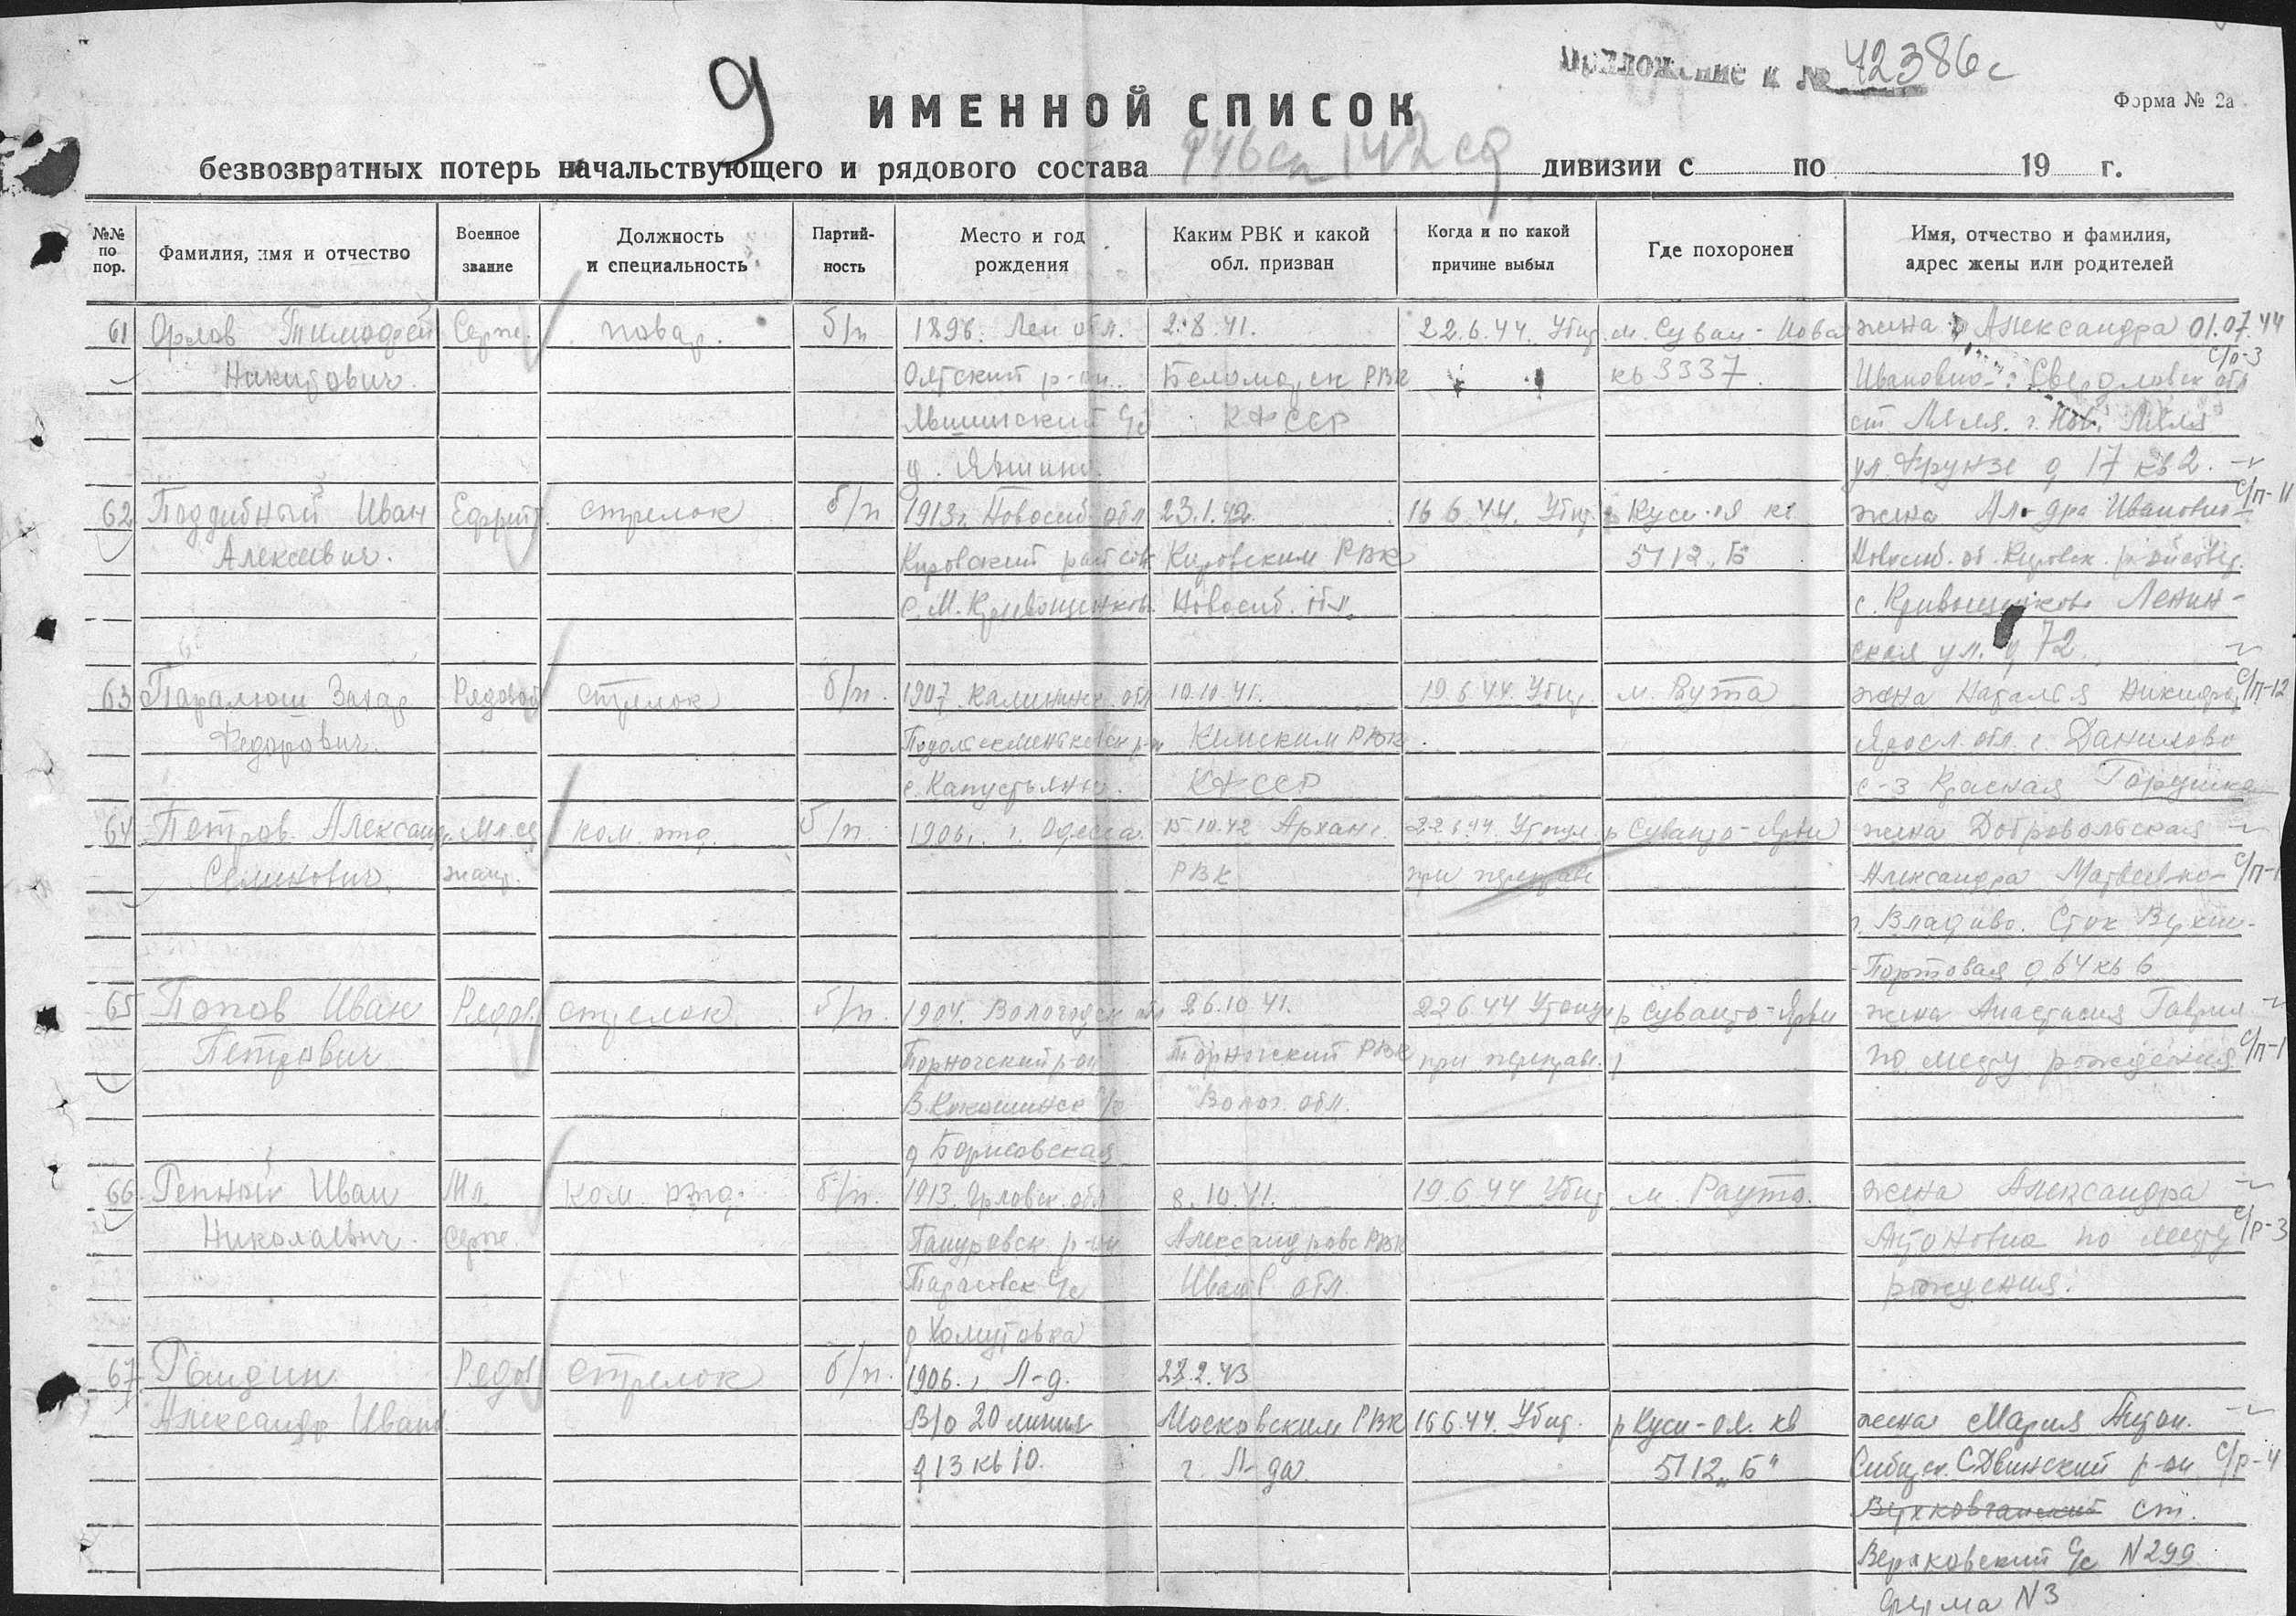 9
Приложение к № 42386с
ИМЕННОЙ СПИСОК
Форма № 2а
безвозвратных потерь начальствующего и рядового состава 946 сп 142 сд дивизии с по 19 г.
№№ по пор.
Фамилия, имя и отчество
Военное звание
Должность и специальность
Партий-ность
Место и год рождения
Каким РВК и какой обл. призван
Когда и по какой причине выбыл
Где похоронен
Имя, отчество и фамилия, адрес жены или родителей
61 Орлов Тимофей Серж. повар. б/п 1896. Лен обл. 2.8.41. 22.6.44. Убит. жена Александра 01.07.44
Никитович. Оятский р-он. Беломорск РВК кв 3337. Ивановна Свердловск обл с/р-3
с/с КФССР ст Ляля. г. Нов. Ляля
д. ул. Фрунзе д 17 кв 2.
62 Поддубный Иван Ефрейт. стрелок б/п 1913г. Новосиб. обл 23.1.42. 16 6.44. Убит. кв жена Ал-дра Ивановна с/п-11
Алексеевич. Кировский Кировским РВК 5112 „Б Новосиб. об. Кировск.
с. М. Кривощеково. Новосиб. обл. с. Кривощеково Ленин-
ская ул. д 72.
63 Захар Рядовой стрелок б/п. 1907. Калининск. обл 10.10.41. 19.6.44. Убит. м. Рута жена Наталья с/п-12
Федорович. Кемским РВК. Яросл. обл. с. Данилово
с. Капустьяны. КФССР с-з Красная Горушка
64 Петров Александр Мл. се ком. отд. б/п. 1906. г. Одесса. 15 10.42 Арханг. 22 6.44. Утонул. р Суванто-Ярви жена Добровольская
Семенович. жант. РВК при переправе Александра Матвеевна с/п-1
г. Владиво. Сток Верхне-
-Портовая д 64 кв 6
65 Попов Иван Рядов. стрелок б/п. 1904. Вологодск обл 26.10 41. 22 6.44 Утонул р Суванто-Ярви жена Анастасия Гаврил
Петрович Торногский р-он Торногский РВК при переправе. по месту рождения с/п-1
В. с/с Волог. обл.
д Борисовская
66. Репный Иван Мл. ком. отд. б/п. 1913. Орловск. обл 8.10.41. 19.6.44 Убит м. Рауто. жена Александра
Николаевич. Серж. р-он Александровс РВК Антоновна по месту с/р-3
Тарасовск с/с Иванов обл. рождения.
д Хомутовка
67 Рядов стрелок б/п. 1906. г. Л-д. 2.43
Александр Иванов. В/о 20 линия Московским РВК 16 6.44. Убит. р Куси-оя. кв жена Мария Антон.
д 13 кв 10. г. Л-да. 5112 „Б" С.Двинский р-он с/р-4
ст.
Верховский с/с N299
ферма N3